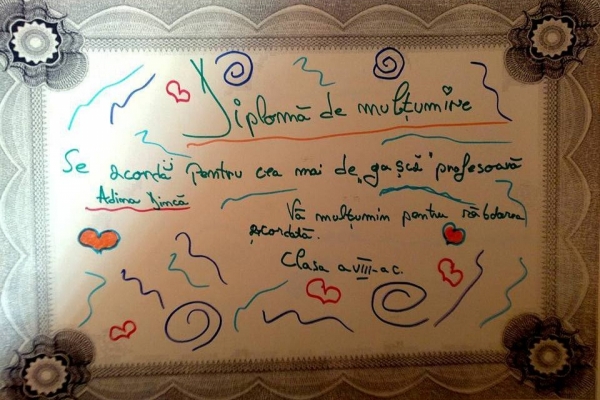 Diplomă de mulțumire
Se acordă pentru cea mai de „gașcă" profesoară
Adina Dincă
Vă mulțumim pentru răbdarea
acordată.
Clasa a VIII-a C.